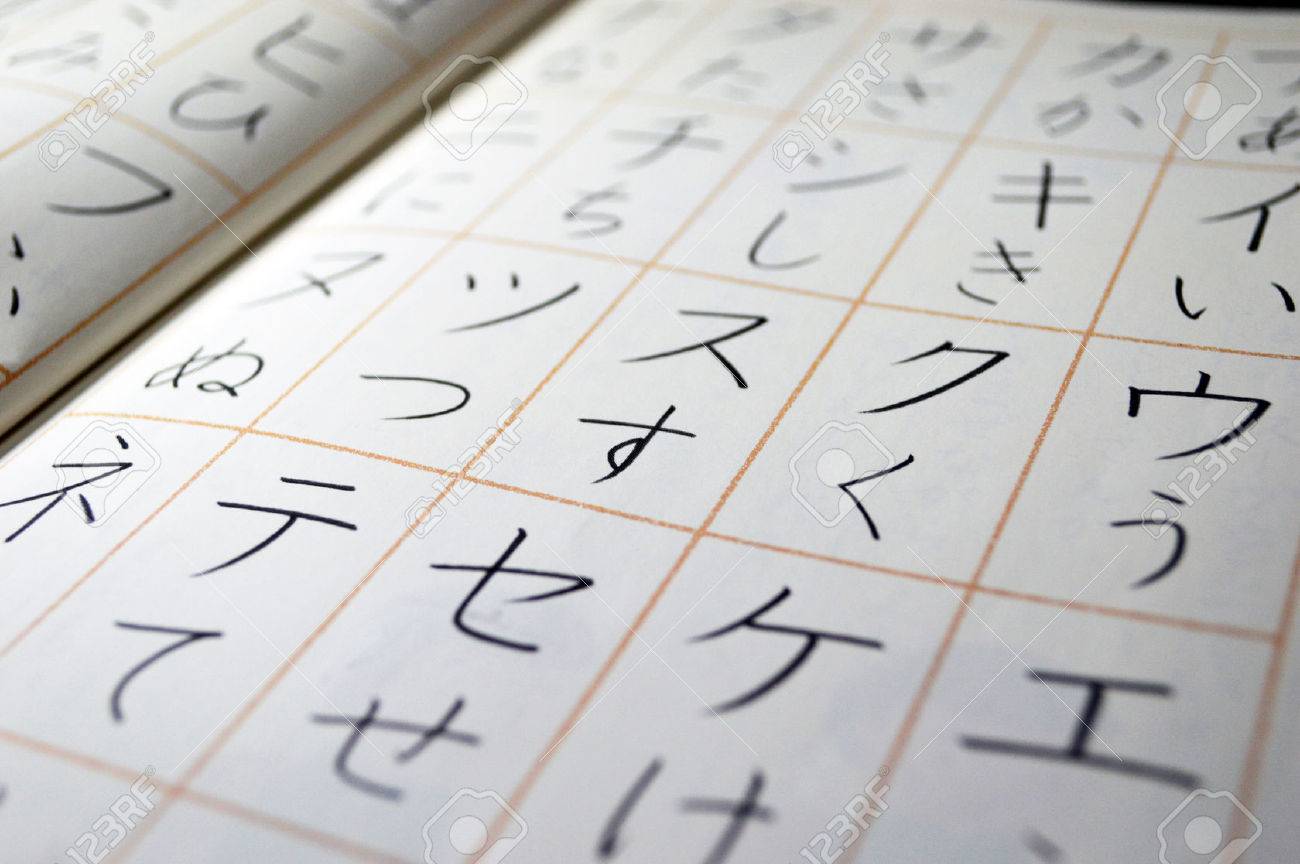 ヒ
ひ
フ
タ サ カ
な た さ か あ
ニ チ シ キ イ
に ち し き い
ヌ ツ ス ク ウ
ぬ つ す く う
ネ テ セ ケ エ
て せ け
123RF
123RF
123RF
123RF
123RF
123RF
123RF
123RF